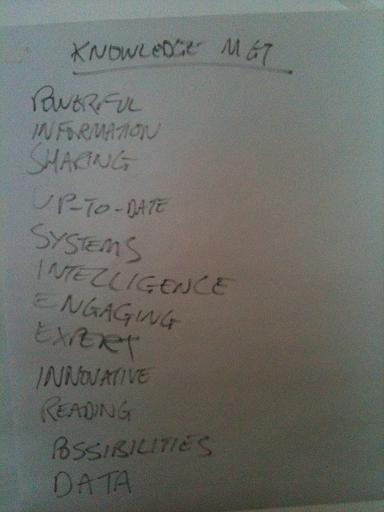 KNOWLEDGE MGT
POWERFUL
INFORMATION
SHARING
UP-TO-DATE
SYSTEMS
INTELLIGENCE
ENGAGING
EXPERT
INNOVATIVE
READING
POSSIBILITIES
DATA